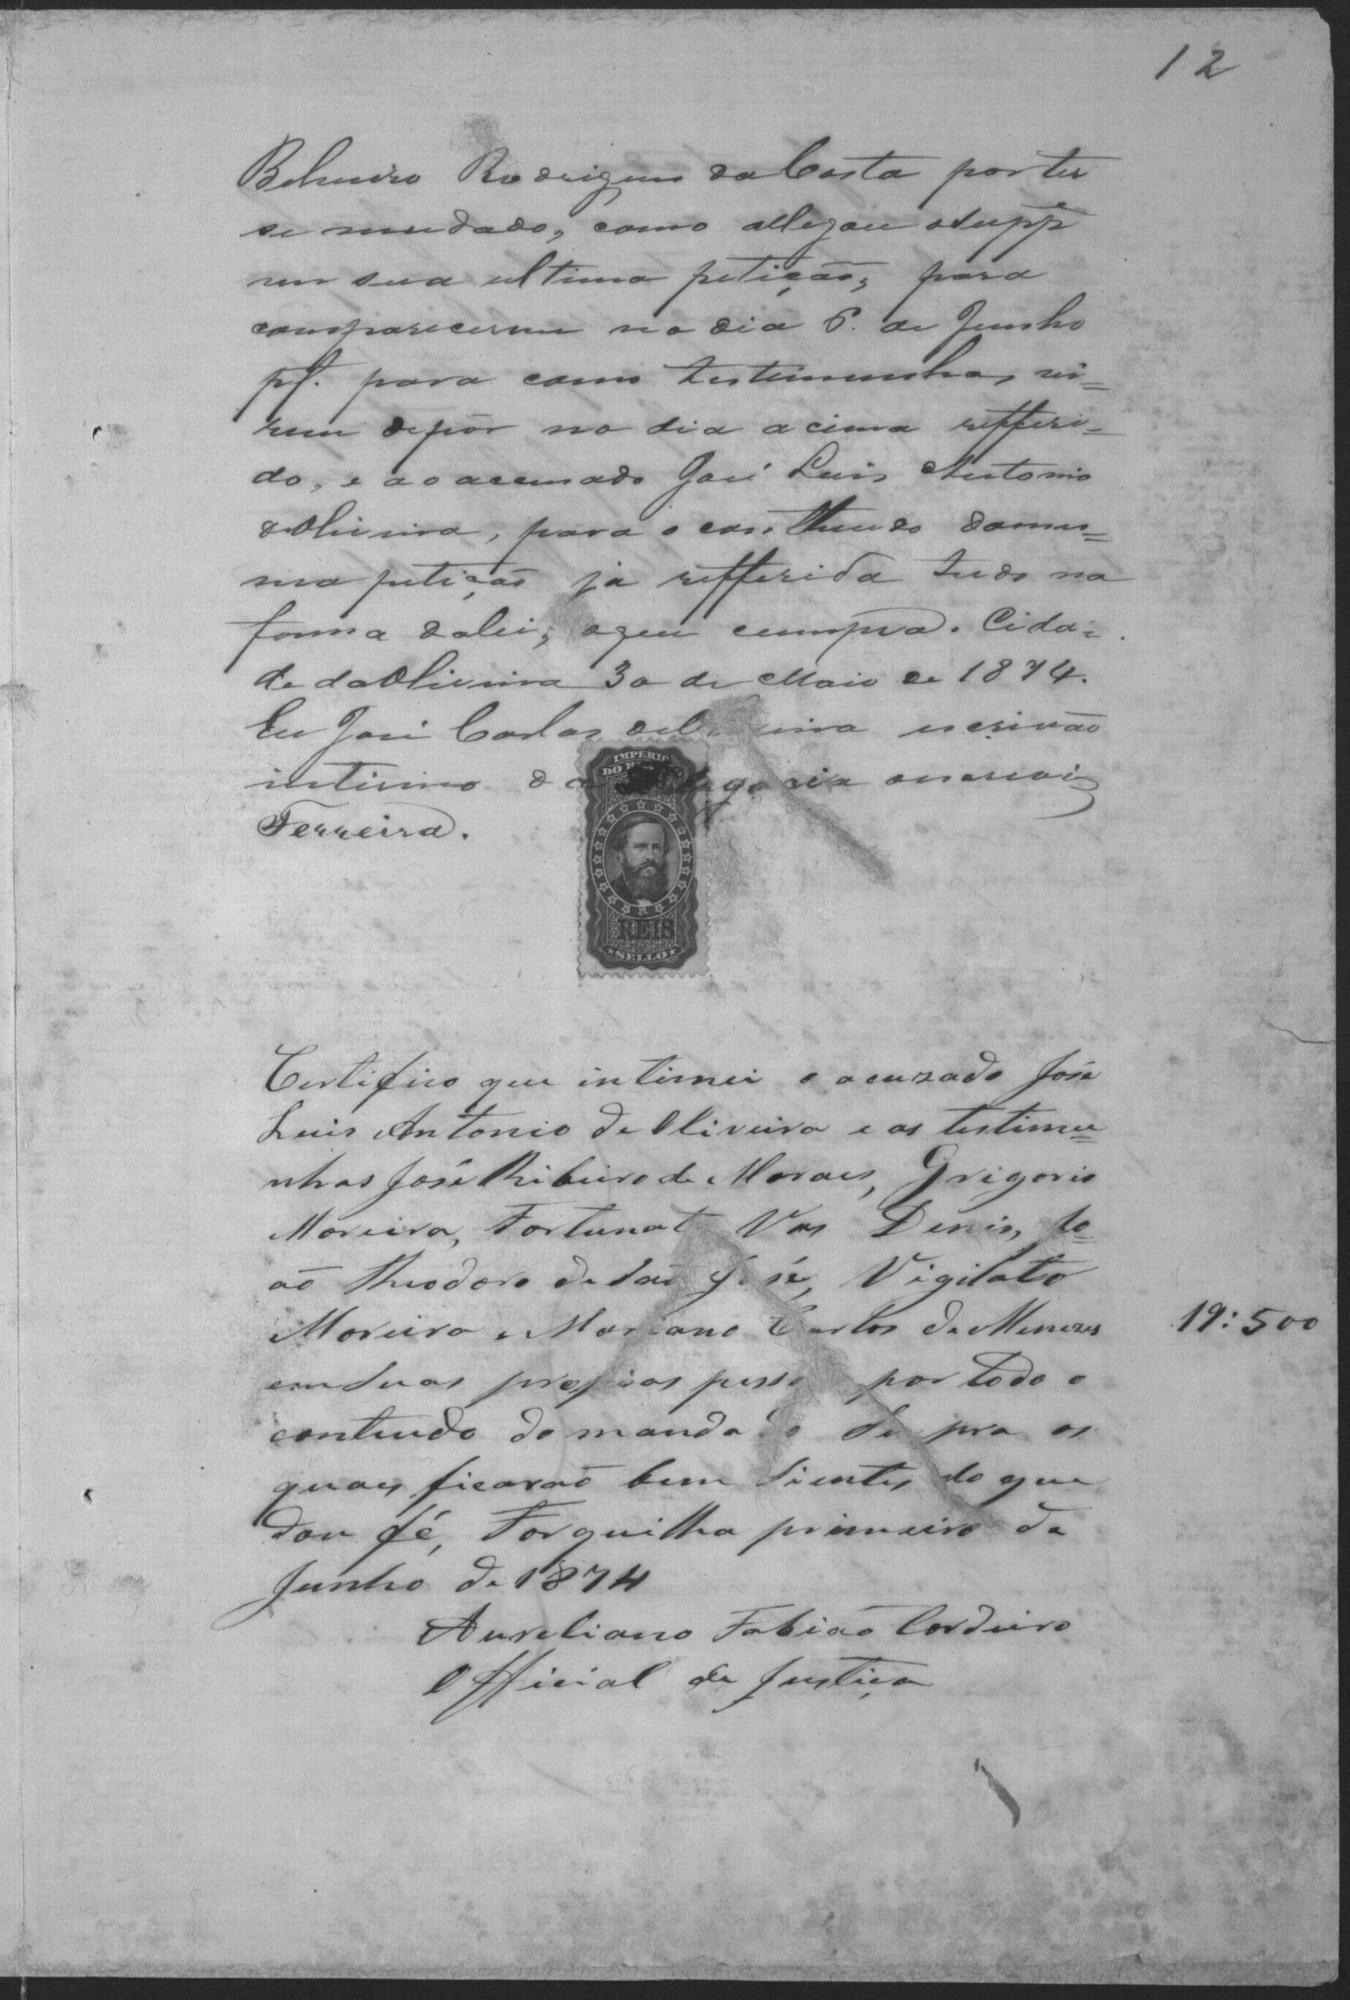 12
Rodrigues da Costa por ter
se mudado, como allegou o supp.e
em sua ultima petição, para
comparecerem no dia 6. de Junho
pf. para como testimunhas, vi=
rem depôr no dia acima refferi=
do, e ao accusado José Luis Antonio
d'Oliveira, para o conttheudo da mes=
ma petição já refferida tudo na
forma da lei; o que cumpra. Cida=
de da Oliveira 30 de Maio de 1874.
Eu José Carlos escrivão
interino da escrevi
Ferreira.
IMPERIO
DO
REIS
SELLO
Certifico que intimei o acuzado José
Luis Antonio de Oliveira e as testimu=
nhas José Ribeiro de Moraes, Grigorio
Moreira, Fortunat Vas Denis, Jo=
aõ Theodoro de Saõ José, Vigilato
Moreira e Mariano Carlos de Menezes
19:500
em suas propias pesso por todo o
conteudo do manda o os
quaes ficaraõ bem Sientes do que
dou fé, Forquilha primeiro de
Junho de 1874
Aureliano Fabiaõ Cordeiro
Official de Justiça